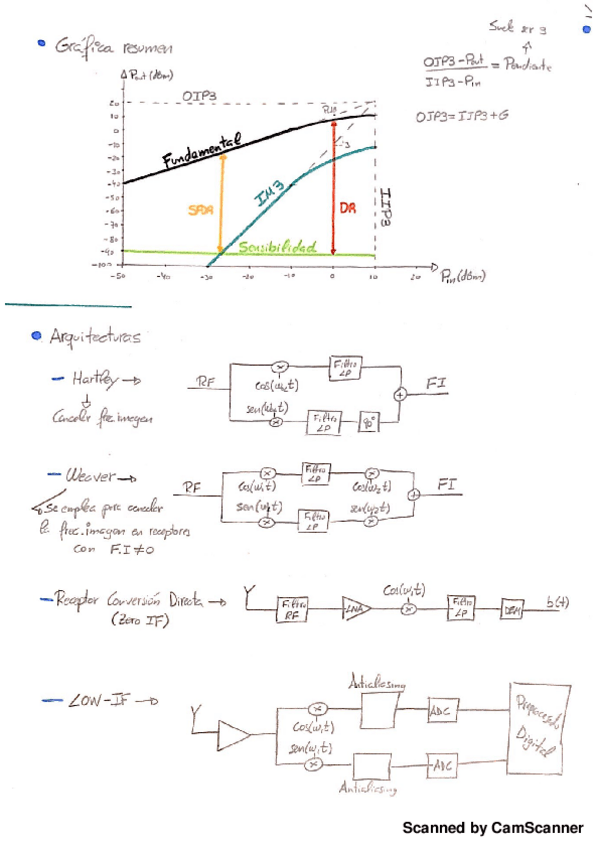 Suele ser 3
• Gráfica resumen
OIP3-Pout
IIP3-Pin
= Pendiente
OIP3=IIP3+G
Pout(dBm)
OIP3
20
10
0
-10
-20
-30
-40
-50
-60
-70
-80
-90
-100
Fundamental
IM3
SFDR
DR
IIP3
Sensibilidad
-50
-40
-30
-20
-10
0
10
Pin(dBm)
• Arquitecturas
- Hartley →
Cancelar frec.imagen
RF
cos(ω₀t)
sen(ω₀t)
Filtro LP
Filtro LP
90°
+
FI
- Weaver →
Se emplea para cancelar
la frec.imagen en receptores
con F.I≠0
RF
cos(ω₁t)
sen(ω₁t)
Filtro LP
Filtro LP
cos(ω₂t)
sen(ω₂t)
+
FI
- Receptor Conversión Directa →
(Zero IF)
Filtro RF
LNA
cos(ω₁t)
Filtro LP
DEM
b(t)
- LOW-IF →
cos(ω₁t)
sen(ω₁t)
Antialiasing
Antialiasing
ADC
ADC
Procesado Digital
Scanned by CamScanner